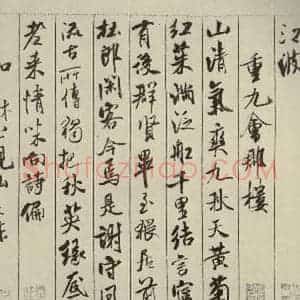 江波
重九會郡樓
山清氣爽九秋天黃菊
紅茱滿泛船千里結言寧
有後群賢畢至猥居前
杜郎閑客今焉是謝守風
流古所傳獨把秋英緣底
老來情味向詩偏
和林公峴山之作